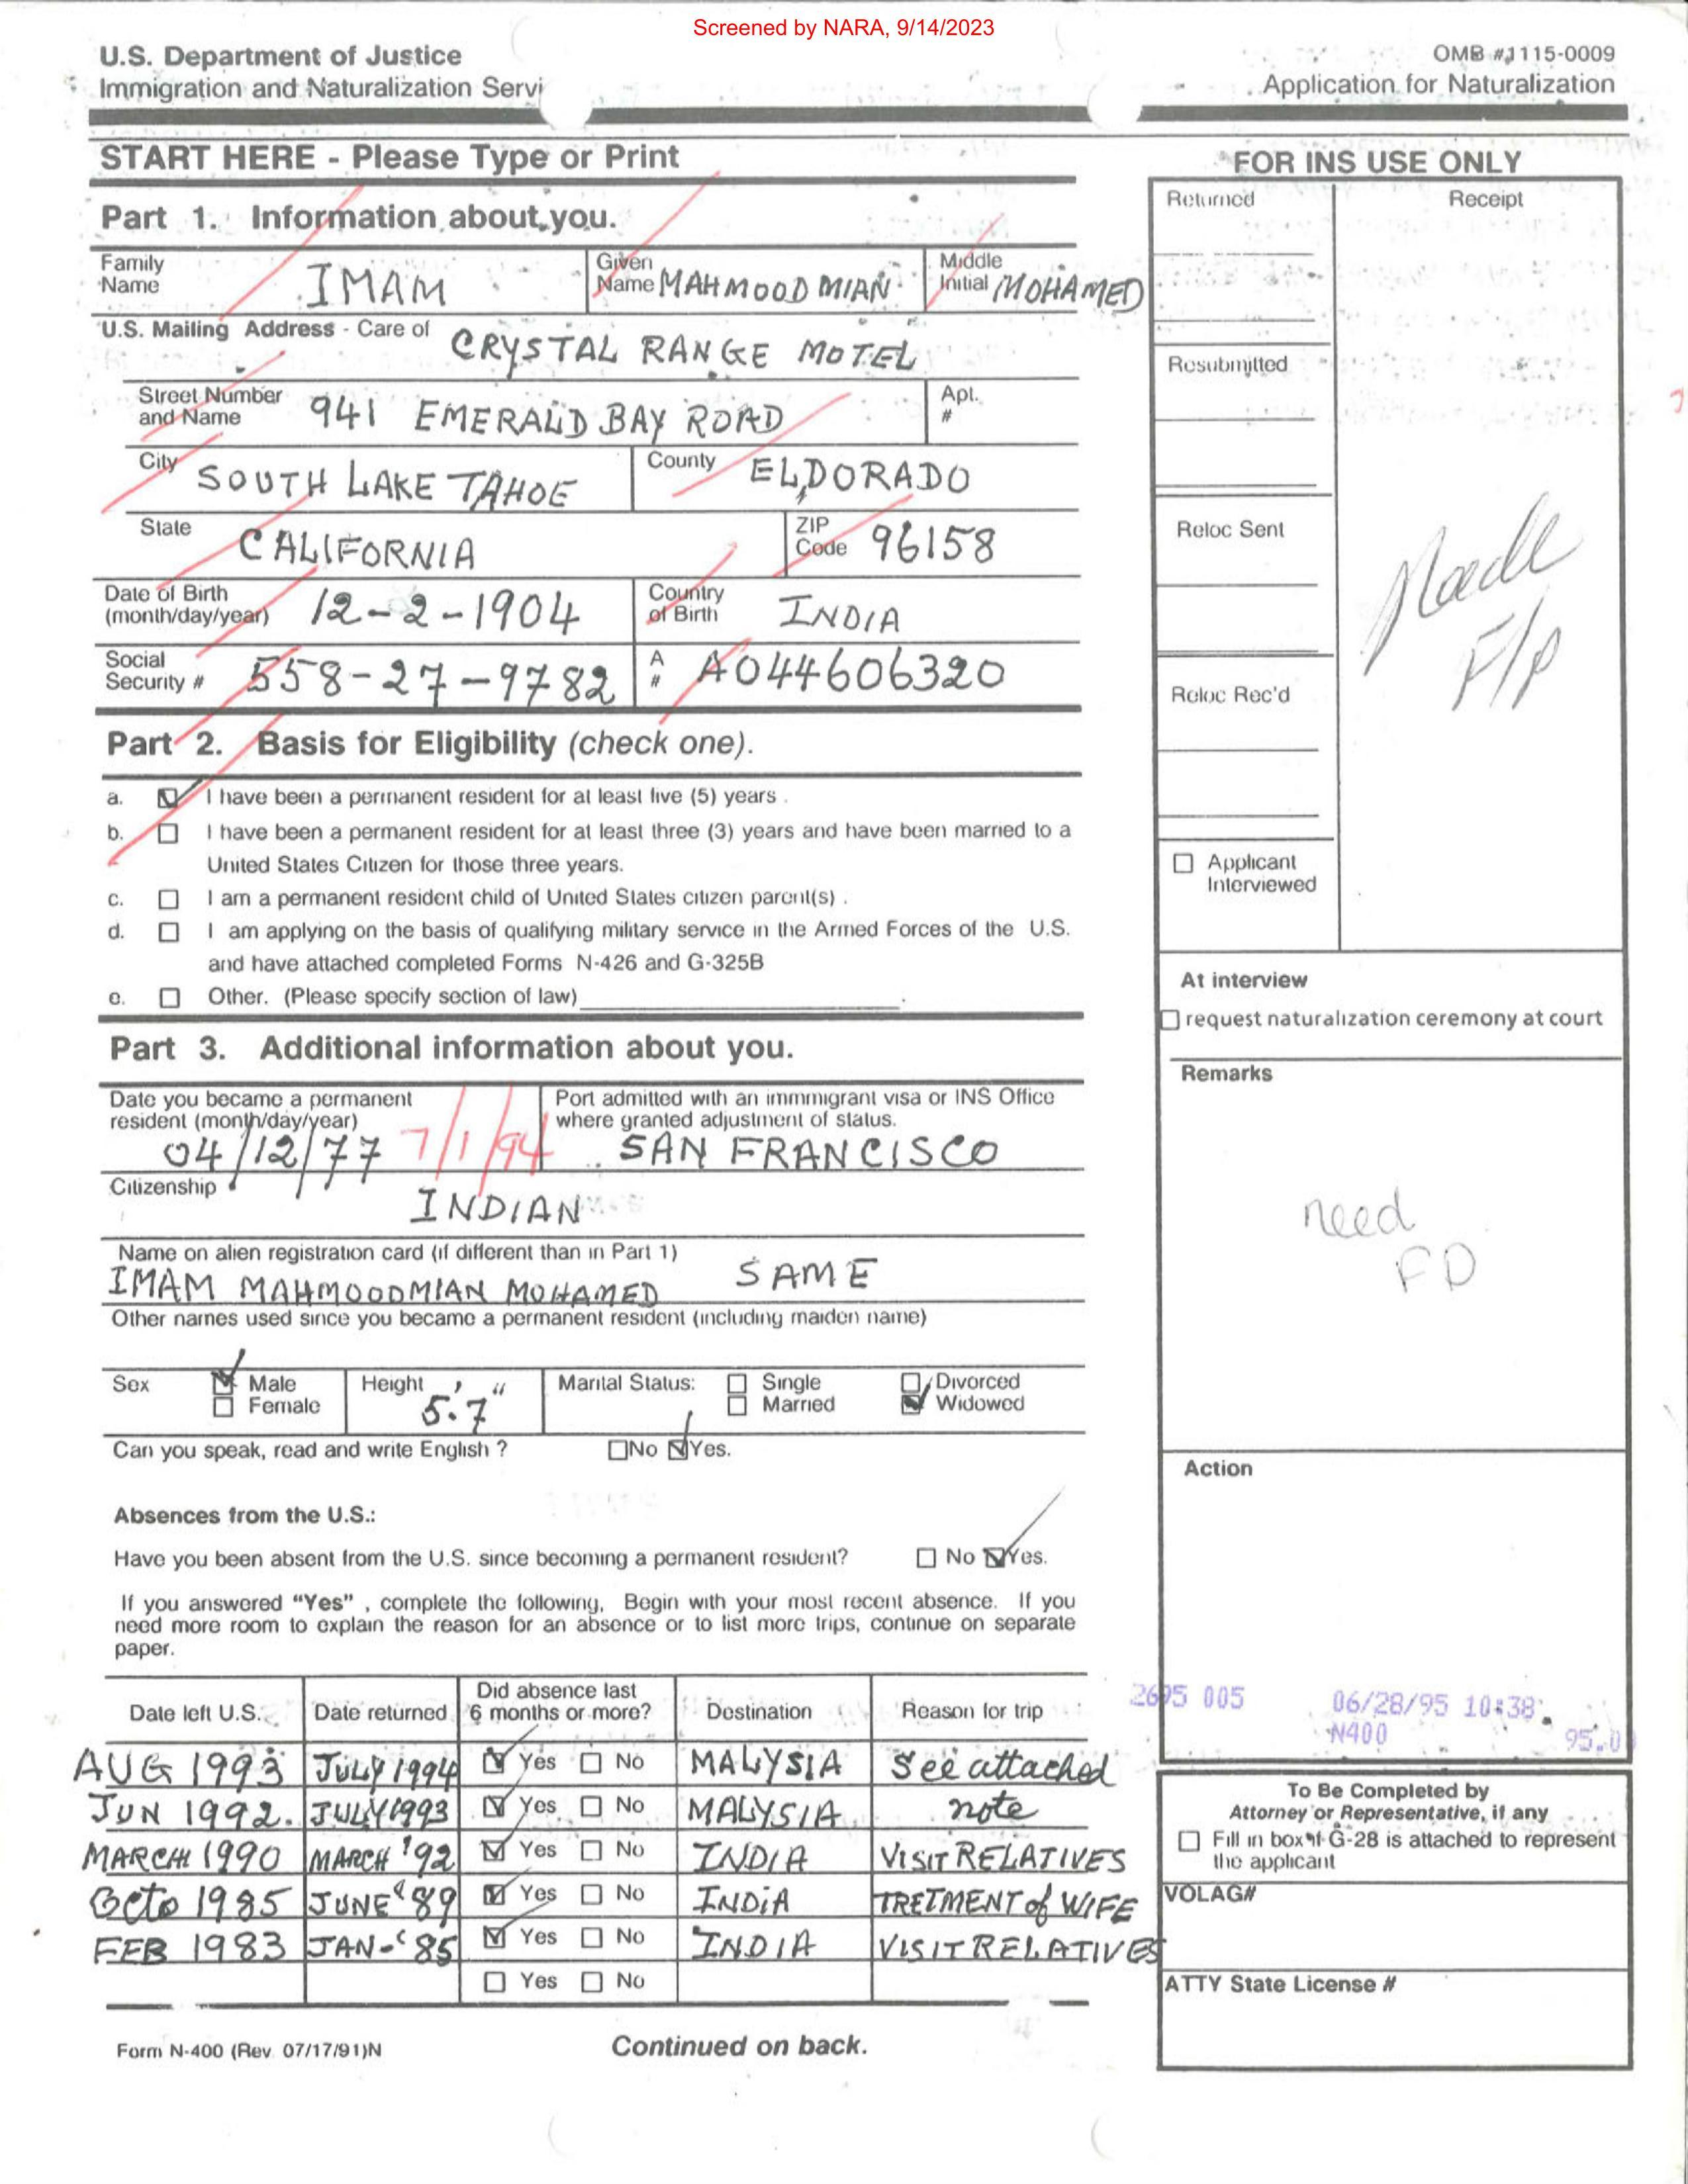 Screened by NARA, 9/14/2023
U.S. Department of Justice
Immigration and Naturalization Servi
OMB #1115-0009
Application for Naturalization
START HERE - Please Type or Print
FOR INS USE ONLY
Part 1. Information about you.
Family Name IMAM
Given Name MAHMOOD MIAN
Middle Initial MOHAMED
U.S. Mailing Address - Care of CRYSTAL RANGE MOTEL
Street Number and Name 941 EMERALD BAY ROAD
Apt. #
City SOUTH LAKE TAHOE
County ELDORADO
State CALIFORNIA
ZIP Code 96158
Date of Birth (month/day/year) 12-2-1904
Country of Birth INDIA
Social Security # 558-27-9782
A # A044606320
Part 2. Basis for Eligibility (check one).
a. I have been a permanent resident for at least five (5) years .
b. I have been a permanent resident for at least three (3) years and have been married to a
United States Citizen for those three years.
c. I am a permanent resident child of United States citizen parent(s) .
d. I am applying on the basis of qualifying military service in the Armed Forces of the U.S.
and have attached completed Forms N-426 and G-325B
e. Other. (Please specify section of law)
Part 3. Additional information about you.
Date you became a permanent
resident (month/day/year)
04/12/77 7/1/94
Port admitted with an immmigrant visa or INS Office
where granted adjustment of status.
SAN FRANCISCO
Citizenship
INDIAN
Name on alien registration card (if different than in Part 1)
IMAM MAHMOODMIAN MOHAMED SAME
Other names used since you became a permanent resident (including maiden name)
Sex Male
Female
Height 5'.7"
Marital Status: Single
Married
Divorced
Widowed
Can you speak, read and write English ? No Yes.
Absences from the U.S.:
Have you been absent from the U.S. since becoming a permanent resident? No Yes.
If you answered "Yes" , complete the following, Begin with your most recent absence. If you
need more room to explain the reason for an absence or to list more trips, continue on separate
paper.
Date left U.S. Date returned Did absence last 6 months or more? Destination Reason for trip
AUG 1993 JULY 1994 Yes No MALYSIA See attached
JUN 1992. JULY 1993 Yes No MALYSIA note
MARCH 1990 MARCH '92 Yes No INDIA VISIT RELATIVES
Octo 1985 JUNE '89 Yes No INDIA TRETMENT of WIFE
FEB 1983 JAN-'85 Yes No INDIA VISIT RELATIVES
Yes No
Form N-400 (Rev 07/17/91)N
Continued on back.
Returned
Receipt
Resubmitted
Reloc Sent
Made
F/p
Reloc Rec'd
Applicant
Interviewed
At interview
request naturalization ceremony at court
Remarks
need
FD
Action
2695 005 06/28/95 10:38
N400 95.0
To Be Completed by
Attorney or Representative, if any
Fill in box if G-28 is attached to represent
the applicant
VOLAG#
ATTY State License #